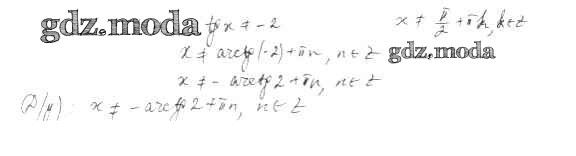 gdz.moda tg x ≠ -2 x ≠ π/2 + πk, k ∈ Z
x ≠ arctg(-2) + πn, n ∈ Z gdz.moda
x ≠ - arctg 2 + πn, n ∈ Z
D(y): x ≠ - arctg 2 + πn, n ∈ Z